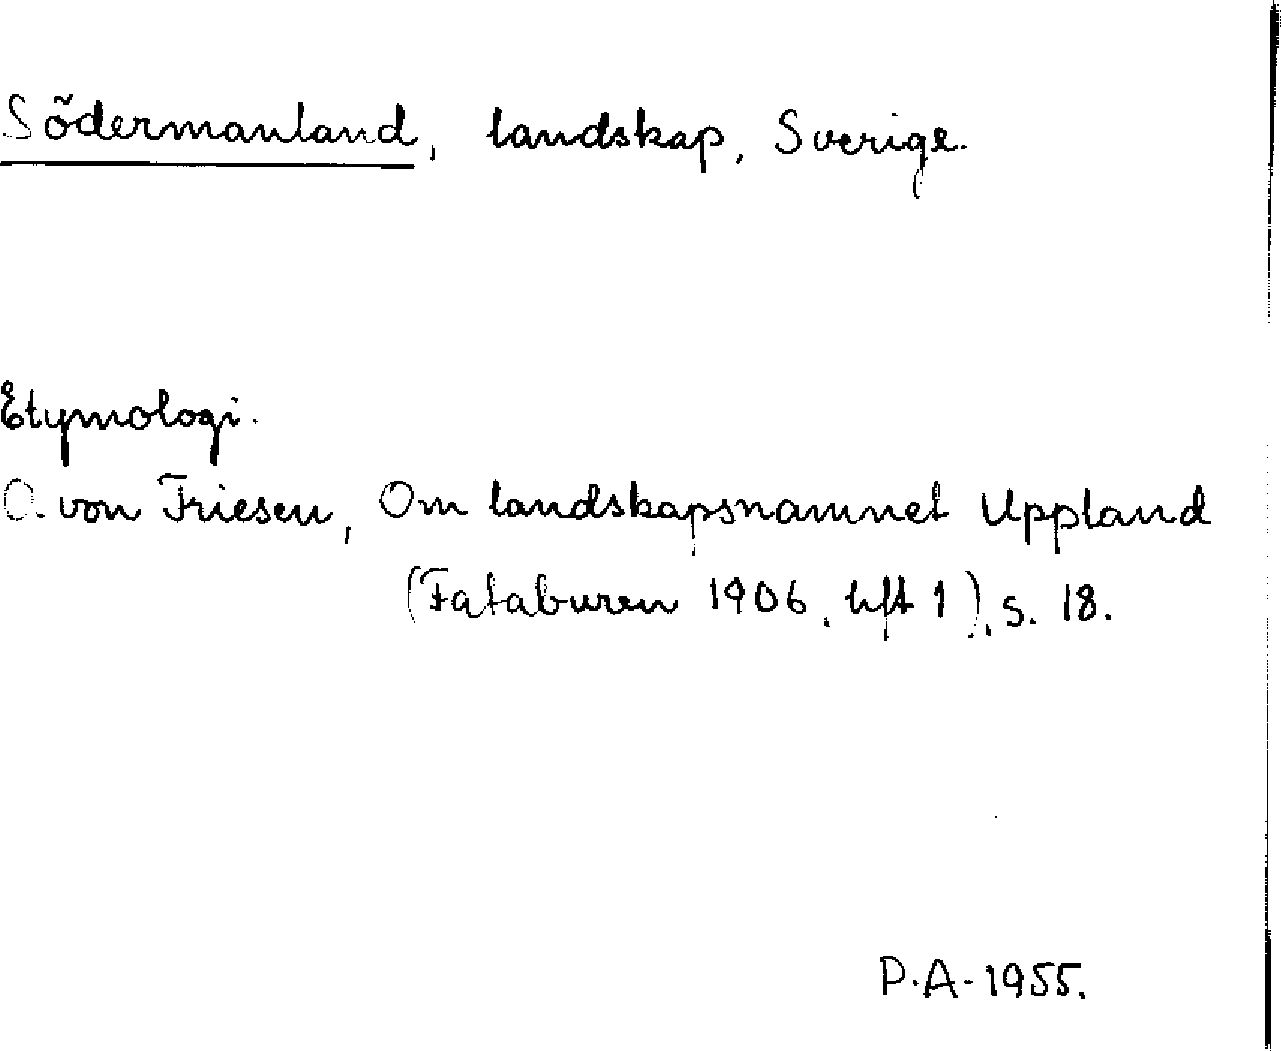 Södermanland, landskap, Sverige.
Etymologi.
O. von Friesen, Om landskapsnamnet Uppland
(Fataburen 1906, hft 1), s. 18.
P.A. 1955.